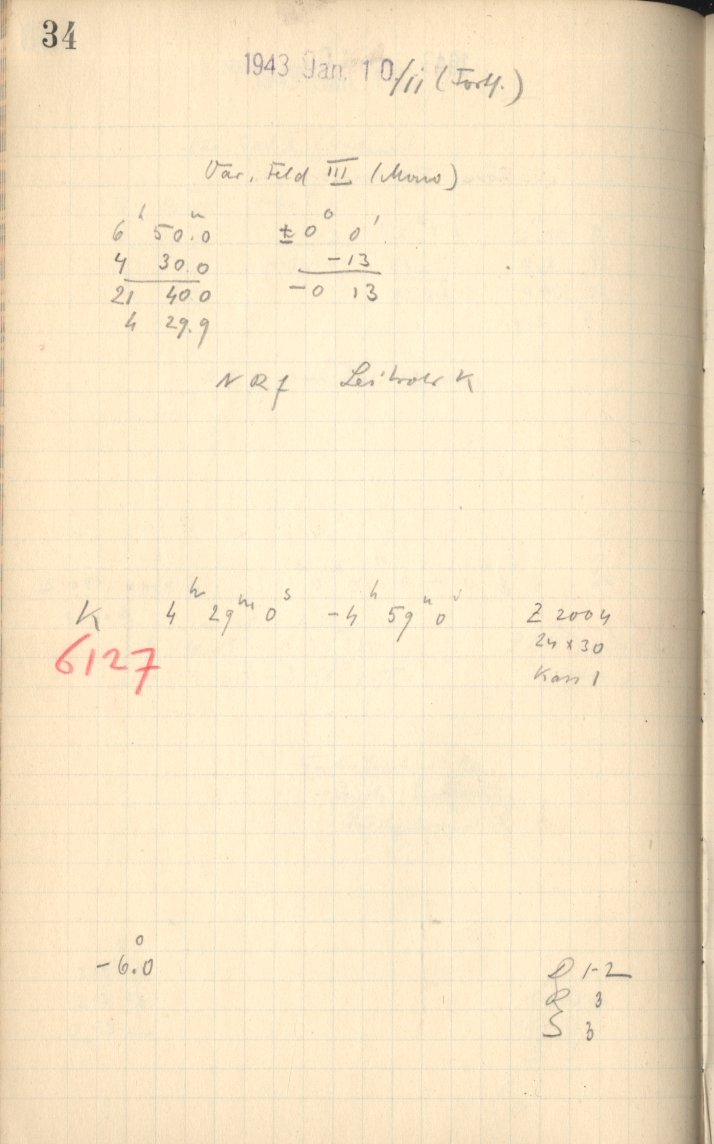 34
1943 Jan. 10/11 (Forts.)
Var. Feld III (Mono)
6ʰ 50.0ᵐ ±0° 0'
4 30.0 -13
21 40.0 -0 13
4 29.9
N R f K
K 4ʰ 29ᵐ 0ˢ -4ʰ 59ᵐ 0ˢ Z 2004
6127 24 x 30
Kass 1
-6.0°
D 1-2
R 3
S 3